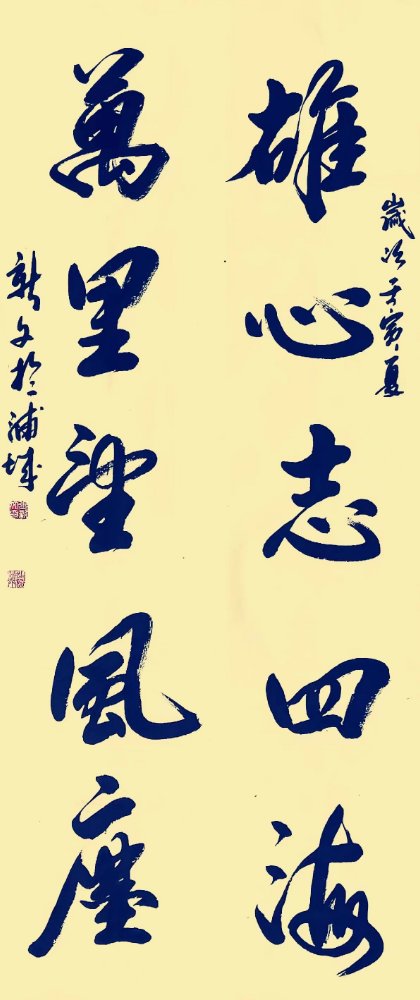 歲次壬寅夏
雄心志四海
萬里望風塵
新文於浦城